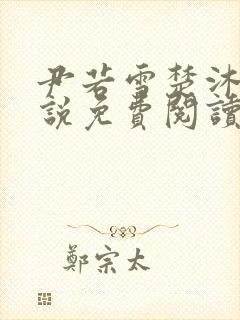 尹若雪楚沐
說免費閱讀
鄭宗太